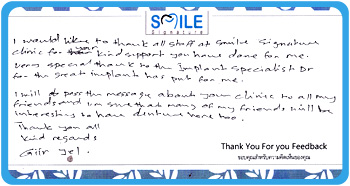 SMILE
SIGNATURE
I would like to thank all staff at Smile Signature
clinic for your kind support you have done for me.
Very special thank to the Implant Specialist Dr
for the great implant has put for me.
I will pass the message about your clinic to all my
friends and I'm sure that many of my friends will be
interesting to have denture here too.
Thank you all
kind regards
Thank You For you Feedback
ขอบคุณสำหรับความคิดเห็นของคุณ